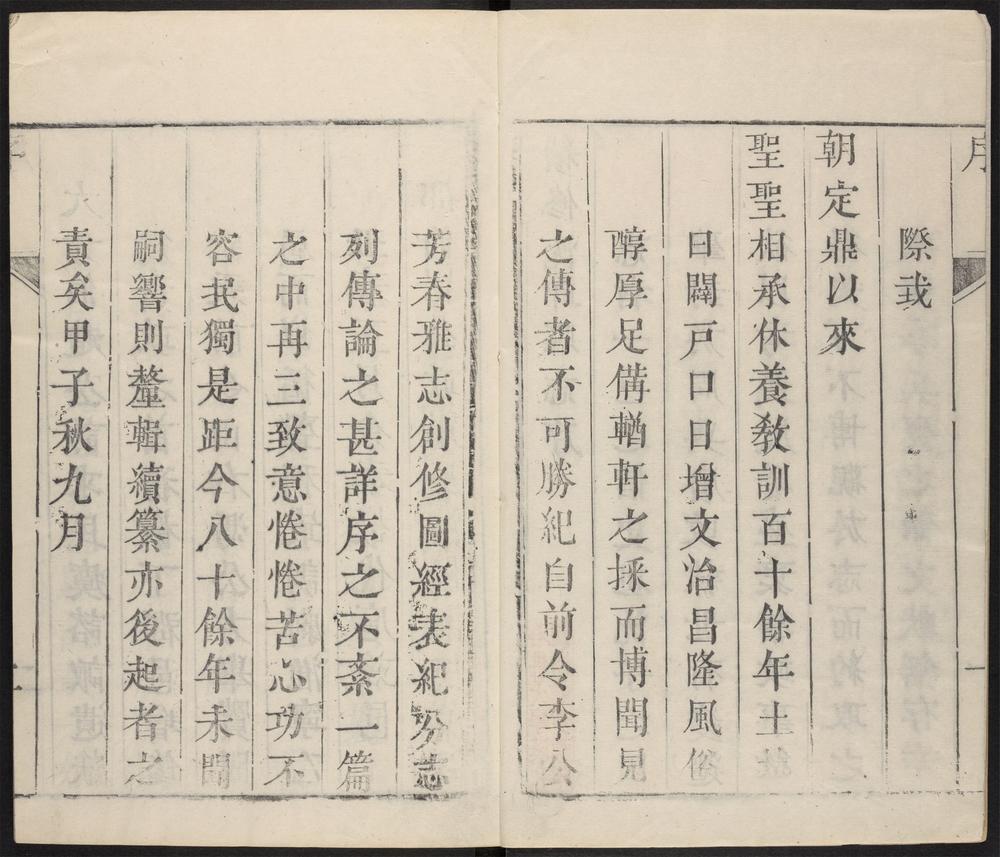 序
際我
朝定鼎以來
聖聖相承休養敎訓百十餘年土
日闢戸口日增文治昌隆風俗
醇厚足備輶軒之採而博聞見
之傳者不可勝紀自前令李公
芳春雅志創修圖經表紀分志
列傳論之甚詳序之不紊一篇
之中再三致意惓惓苦心功不
容民獨是距今八十餘年未聞
嗣響則釐輯續纂亦後起者之
責矣甲子秋九月